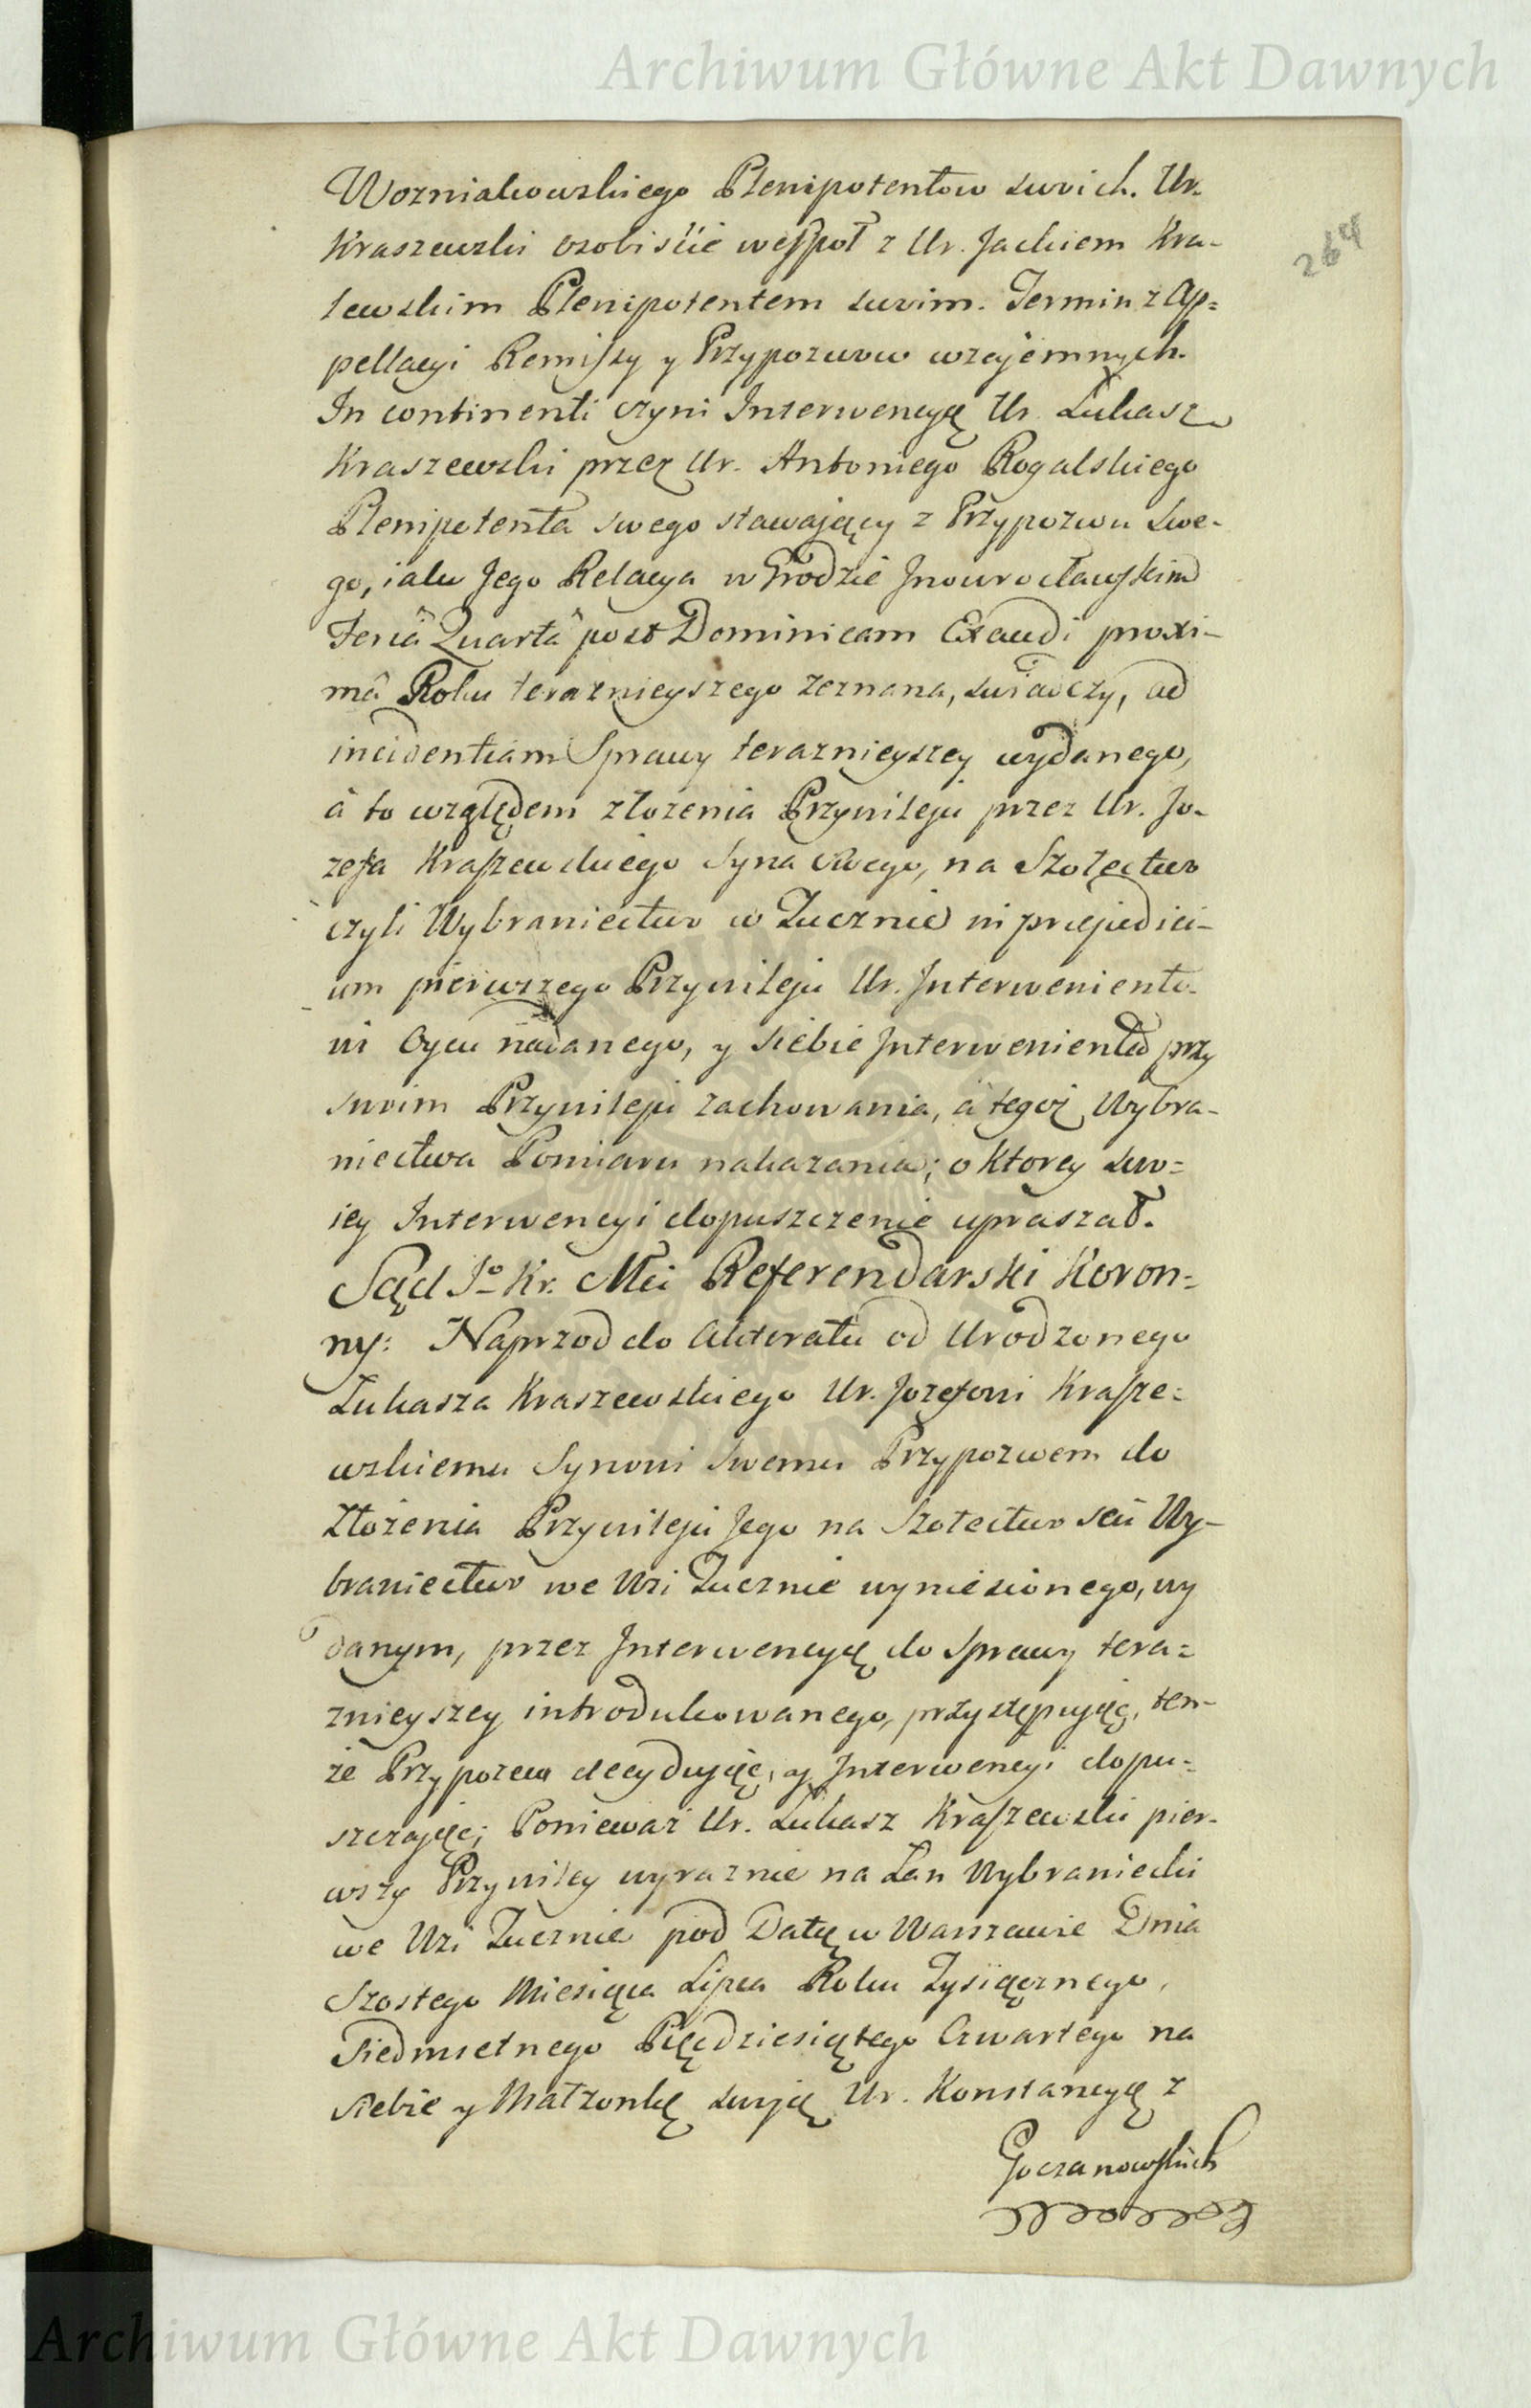 Archiwum Główne Akt Dawnych
264
Wozniakowskiego Plenipotentow swoich. Ur.
Kraszewski osobiście wespoł z Ur. Jackiem Kra-
lewskim Plenipotentem swoim. Termin z Ap=
pellacyi Remissy y Przypozwow wzajemnych.
In continenti czyni Interwencyą Ur. Łukasz
Kraszewski przez Ur. Antoniego Rogalskiego
Plenipotenta swego stawaiący z Przypozwu swe-
go, iako Jego Relacya w Grodzie Inowrocławskim
Feriâ Quartâ post Dominicam Exaudi proxi-
mâ Roku teraznieyszego zeznana, swiadczy, ad
incidentiam Sprawy teraznieyszey wydanego,
â to względem złożenia Przywileju przez Ur. Jo-
zefa Kraszewskiego Syna swego, na Szołectwo
czyli Wybraniectwo w Łucznie in praejudici-
um pierwszego Przywileju Ur. Interweniento-
wi Oycu nadanego, y siebie Interwenienta przy
swoim Przywileju zachowania, â tegoż Wybra-
niectwa Pomiaru nakazania; o ktorey swo=
iey Interwencyi dopuszczenie upraszał.
Sąd Jo Kr. Mci Referendarski Koron=
ny: Naprzod do Akteratu od Urodzonego
Łukasza Kraszewskiego Ur. Jozefowi Krasze=
wskiemu Synowi swemu Przypozwem do
Złożenia Przywileju Jego na Szołectwo seu Wy-
braniectwo we Wsi Łucznie wyniesionego, wy
danym, przez Interwencyą do Sprawy tera=
znieyszey introdukowanego, przystępując, ten-
że Przypozew decydując, y Interwencyi dopu=
szczając; Ponieważ Ur. Łukasz Kraszewski pier-
wszy Przywiley wyraznie na Łan Wybraniecki
we Wsi Łucznie pod Datą w Warszawie Dnia
Szostego Miesiąca Lipca Roku Tysiącznego,
Siedmsetnego Pięćdziesiątego Czwartego na
siebie y Małżonkę swoją Ur. Konstancyą z
Goczanowskich
Archiwum Główne Akt Dawnych